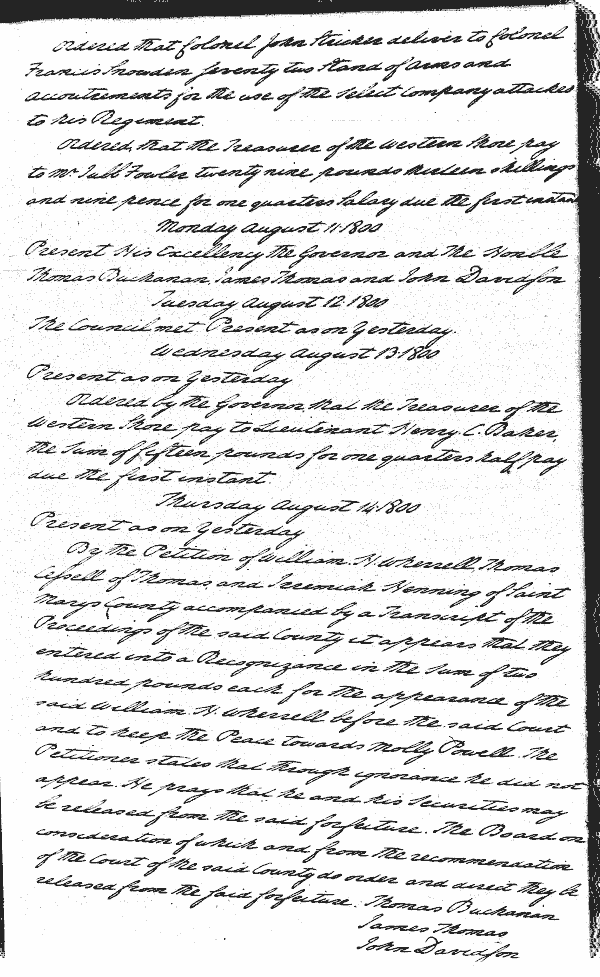 Ordered that Colonel John Stricker deliver to Colonel
Francis Snowden Seventy two Stand of Arms and
accoutrements for the use of the Select Company attached
to his Regiment.
Ordered, that the Treasurer of the Western Shore pay
to Mr. Jubb Fowler twenty nine pounds thirteen shillings
and nine pence for one quarters Salary due the first instant
Monday August 11. 1800
Present His Excellency the Governor and The Honble
Thomas Buchanan, James Thomas and John Davidson
Tuesday August 12. 1800
The Council met Present as on Yesterday.
Wednesday August 13. 1800
Present as on Yesterday
Ordered by the Governor, that the Treasurer of the
Western Shore pay to Lieutenant Henry. C. Baker,
the Sum of fifteen pounds for one quarters half pay
due the first instant.
Thursday August 14. 1800
Present as on Yesterday
By the Petition of William. H. Wherrell, Thomas
Cissell of Thomas and Jeremiah Henning of Saint
Marys County accompanied by a Transcript of the
Proceedings of the said County it appears that they
entered into a Recognizance in the Sum of two
hundred, pounds each for the appearance of the
said William. H. Wherrell before the said Court
and to keep the Peace towards Molly Powell. The
Petitioner states that through ignorance he did not
appear. He prays that he and his Securities may
be released from the said forfeiture. The Board on
consideration of which and from the recommendation
of the Court of the said County do order and direct they be
released from the said forfeiture. Thomas Buchanan
James Thomas
John Davidson